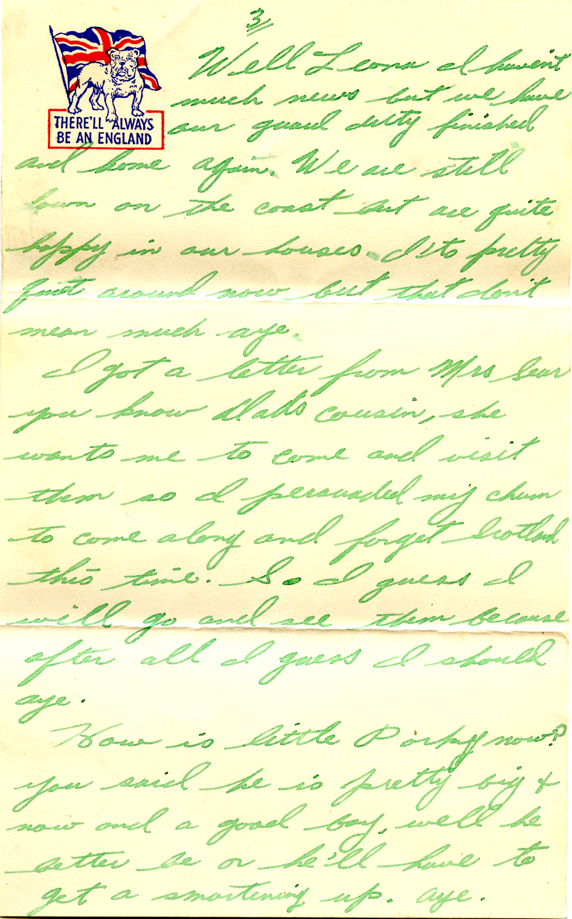 3/
THERE'LL ALWAYS
BE AN ENGLAND
Well Leona I haven't
much news but we have
our guard duty finished
and home again. We are still
down on the coast but are quite
happy in our houses. It's pretty
quiet around now but that don't
mean much aye.
I got a letter from Mrs Sear
you know Dad's cousin, she
wants me to come and visit
them so I persuaded my chum
to come along and forget Scotland
this time. So I guess I
will go and see them because
after all I guess I should
aye.
How is little Porky now?
you said he is pretty big &
now and a good boy, well he
better be or he'll have to
get a smartening up. aye.